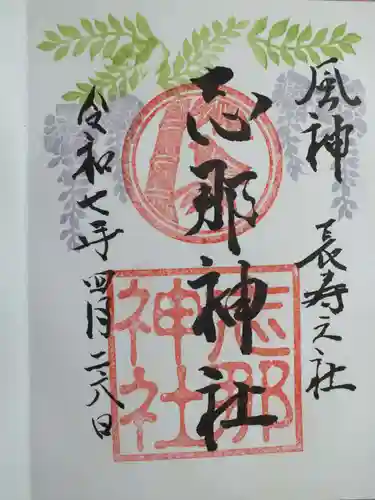 風神
長寿之社
志那神社
令和七年四月二十八日
志那
神社